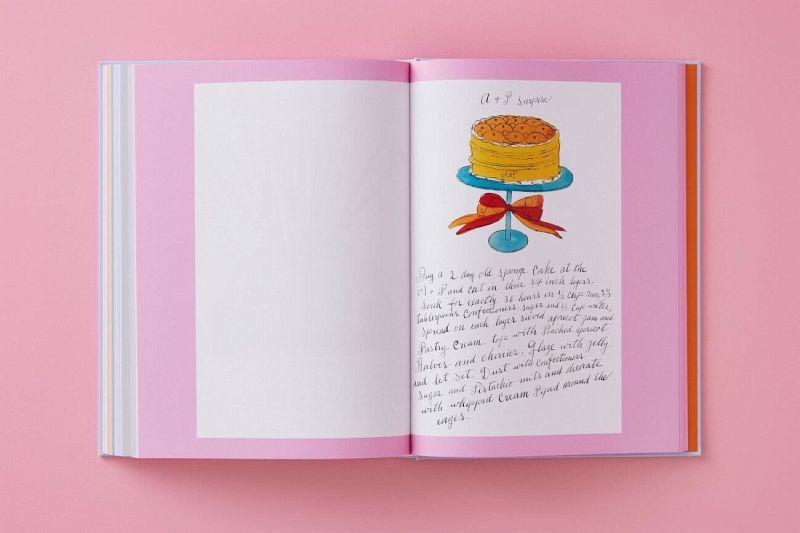 A + P Surprise
Buy a 2 day old sponge cake at the
A + P and cut in three 3/4 inch layers.
Soak for exactly 36 hours in ½ cup rum, 2/3
tablespoons confectioners sugar and ½ cup water,
Spread on each layer sieved apricot jam and
Pastry cream. top with Poached apricot
Halves and cherries. Glaze with jelly
and let set. Dust with confectioners
Sugar and Pistachio nuts and decorate
with whipped Cream Piped around the
edges.